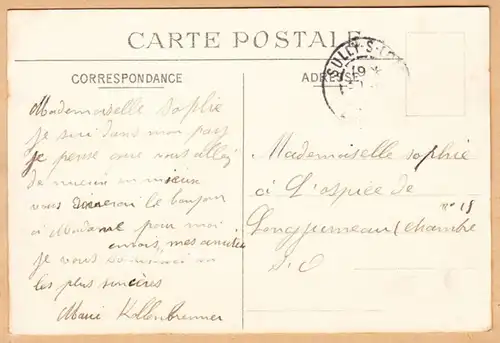 CARTE POSTALE
SULLY-S-L
CORRESPONDANCE
ADRESSE
Mademoiselle Sophie
je sui dans mon pays
je pense avec vous allez
de mieux en mieux
vous donnerai le bonjour
à Madame pour moi
mes amitiés
je vous
les plus sincères
Marie Kollenbrenner
Mademoiselle sophie
a L'ospice de
Longjumeau (chambre
n° 15
S. O